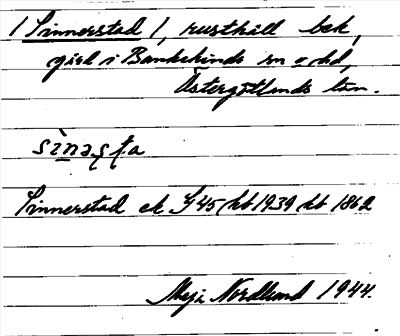 / Sinnerstad /, rusthåll bek,
gård i Bankekinds sn o hd,
Östergötlands län.
sìnəsṭa
Sinnerstad ek G 45 hb 1939 kb 1862
Maja Nordlund 1944.